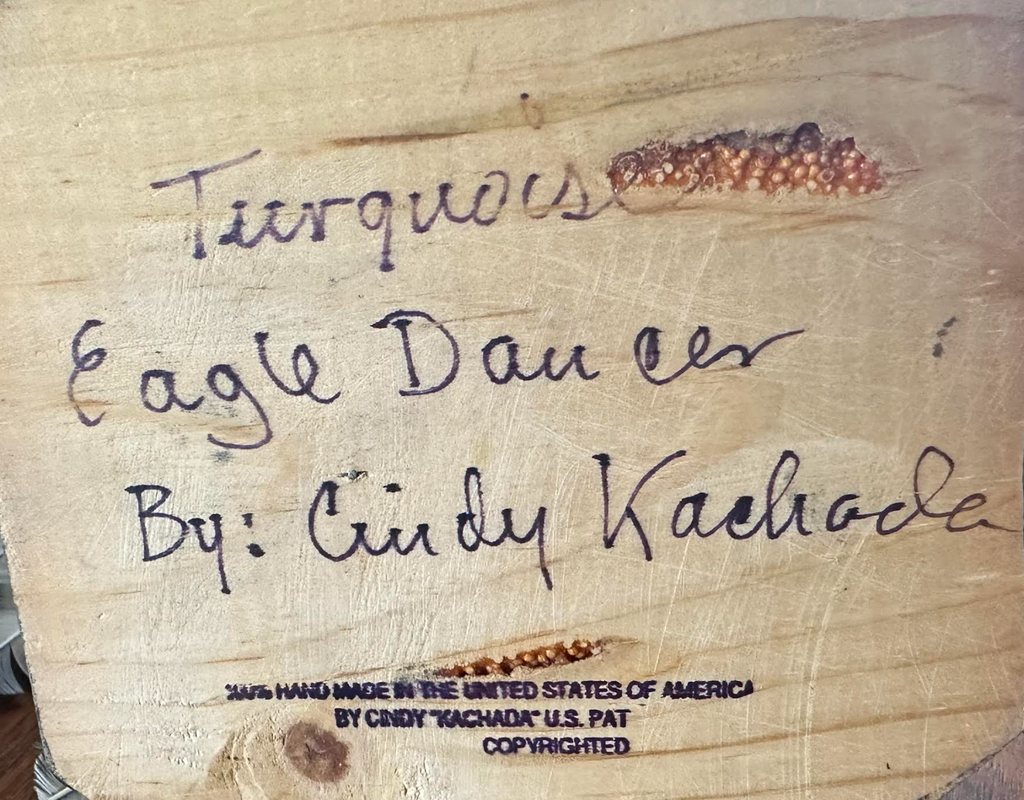 Turquoise
Eagle Dancer
By: Cindy Kachada
100% HAND MADE IN THE UNITED STATES OF AMERICA
BY CINDY "KACHADA" U.S. PAT
COPYRIGHTED